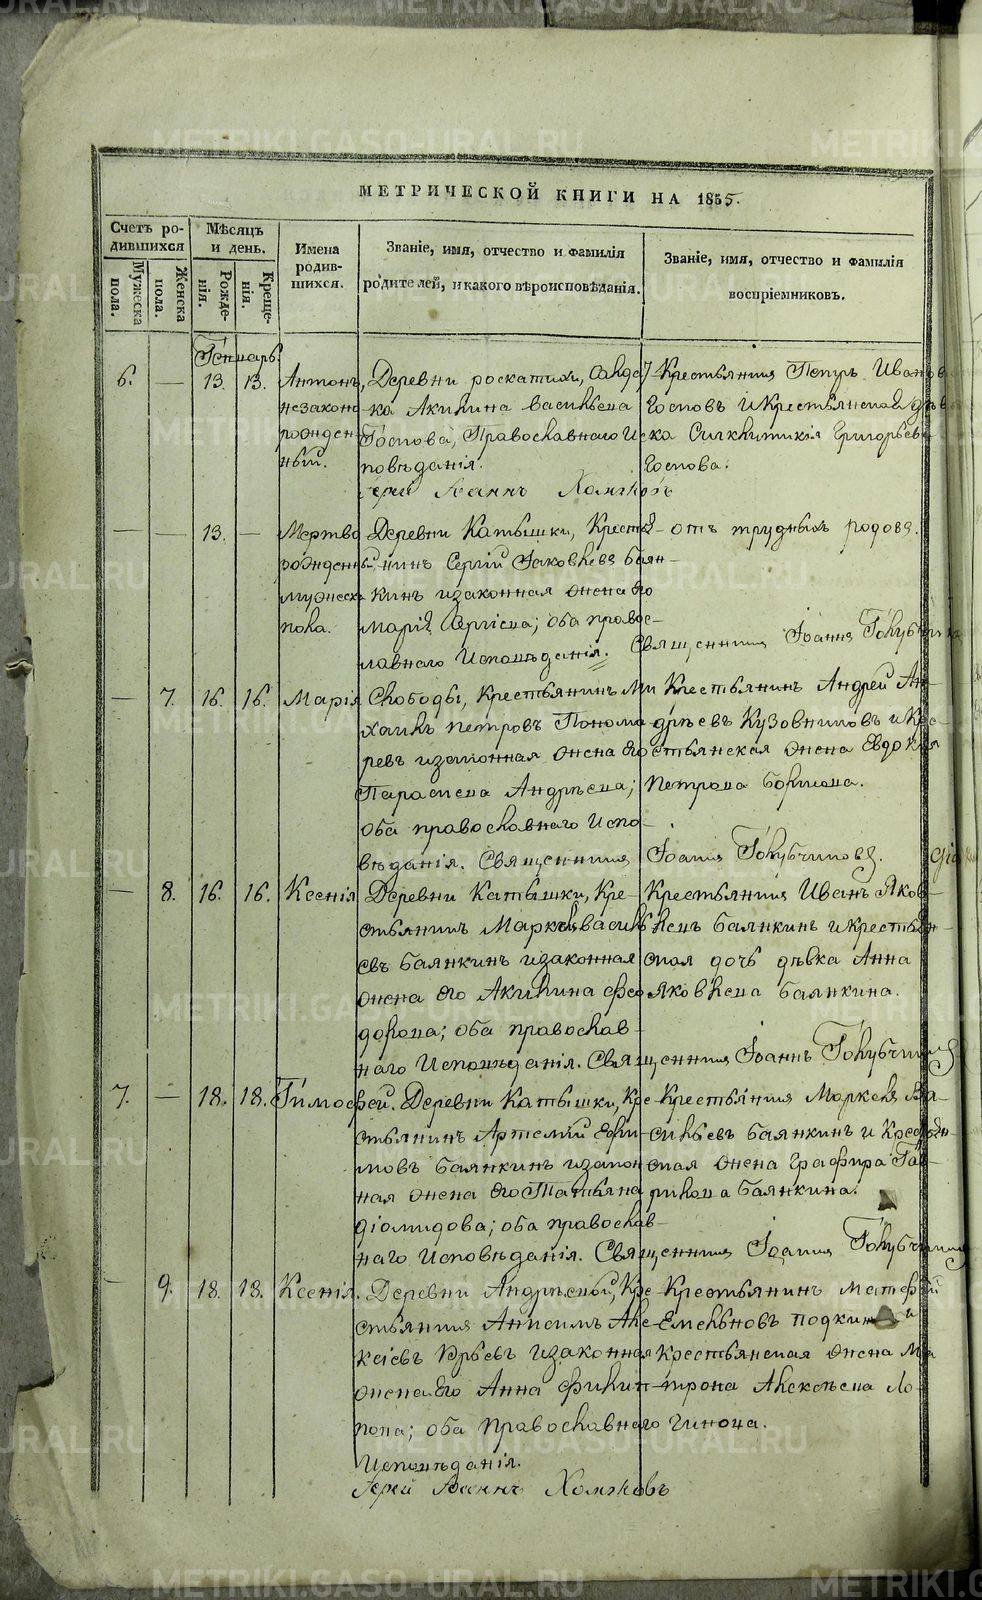 МЕТРИЧЕСКОЙ КНИГИ НА 1855.
Счетъ ро-
дившихся
Мужеска пола.
Женска пола.
Мѣсяцъ
и день.
Рожде-
нія.
Креще-
нія.
Имена
родив-
шихся.
Званіе, имя, отчество и фамилія
родителей, и какого вѣроисповѣданія.
Званіе, имя, отчество и фамилія
воспріемниковъ.
Генварь.
6. — 13. 13.
Антонъ,
незаконо
рожден-
ный.
Деревни роскатихи, Солда
ка Акилина васильева
Госпова, Православнаго Ис
повѣданія.
Крестьянинъ Петръ Ивановъ
Госповъ и Крестьянская дѣв
ка Григорьева
Госпова.
Іерей Іоаннъ Хомяковъ
— — 13. —
Мертво
рожденный
мужеска
пола.
Деревни Катышки, Кресть
янинъ Сергій Яковлевъ Баян-
кинъ изаконная жена его
Марія Сергіева; оба правос-
лавнаго Исповѣданія.
отъ трудныхъ родовъ.
Священникъ Іоаннъ Голубчиковъ
— 7. 16. 16.
Марія
Слободы, Крестьянинъ Ми
хаилъ Петровъ Понома
ревъ изаконная жена его
Парасева Андрѣева;
оба православнаго Испо-
вѣданія.
Крестьянинъ Андрей Ан-
дрѣевъ Кузовниковъ и Кре-
стьянская жена Евдокія
Петрова
Священникъ Іоаннъ Голубчиковъ.
— 8. 16. 16.
Ксенія
Деревни Катышки, Кре-
стьянинъ Маркелъ Василь
евъ Баянкинъ изаконная
жена его Акилина Фео
дорова; оба православ-
наго Исповѣданія.
Крестьянинъ Иванъ Яков-
левъ Баянкинъ и крестьян-
ская дочь дѣвка Анна
Яковлева Баянкина.
Священникъ Іоаннъ Голубчиковъ
7. — 18. 18.
Тимофей.
Деревни Катышки, Кре
стьянинъ Артемій Ефи-
мовъ Баянкинъ изакон
ная жена его Татьяна
Діомидова; оба православ-
наго Исповѣданія.
Крестьянинъ Маркелъ Ва-
сильевъ Баянкинъ и Крестьян-
ская жена Глафира Гав-
рилова Баянкина.
Священникъ Іоаннъ Голубчиковъ
— 9. 18. 18.
Ксенія.
Деревни Андрѣевой, Кре
стьянинъ Анисимъ Але
ксіевъ Юрьевъ изаконная
жена его Анна Филип-
пова; оба Православнаго
Исповѣданія.
Крестьянинъ Матфей
Емельяновъ
Крестьянская жена Ма
трона Алексѣева Ло-
гинова.
Іерей Іоаннъ Хомяковъ
METRIKI.GASO-URAL.RU